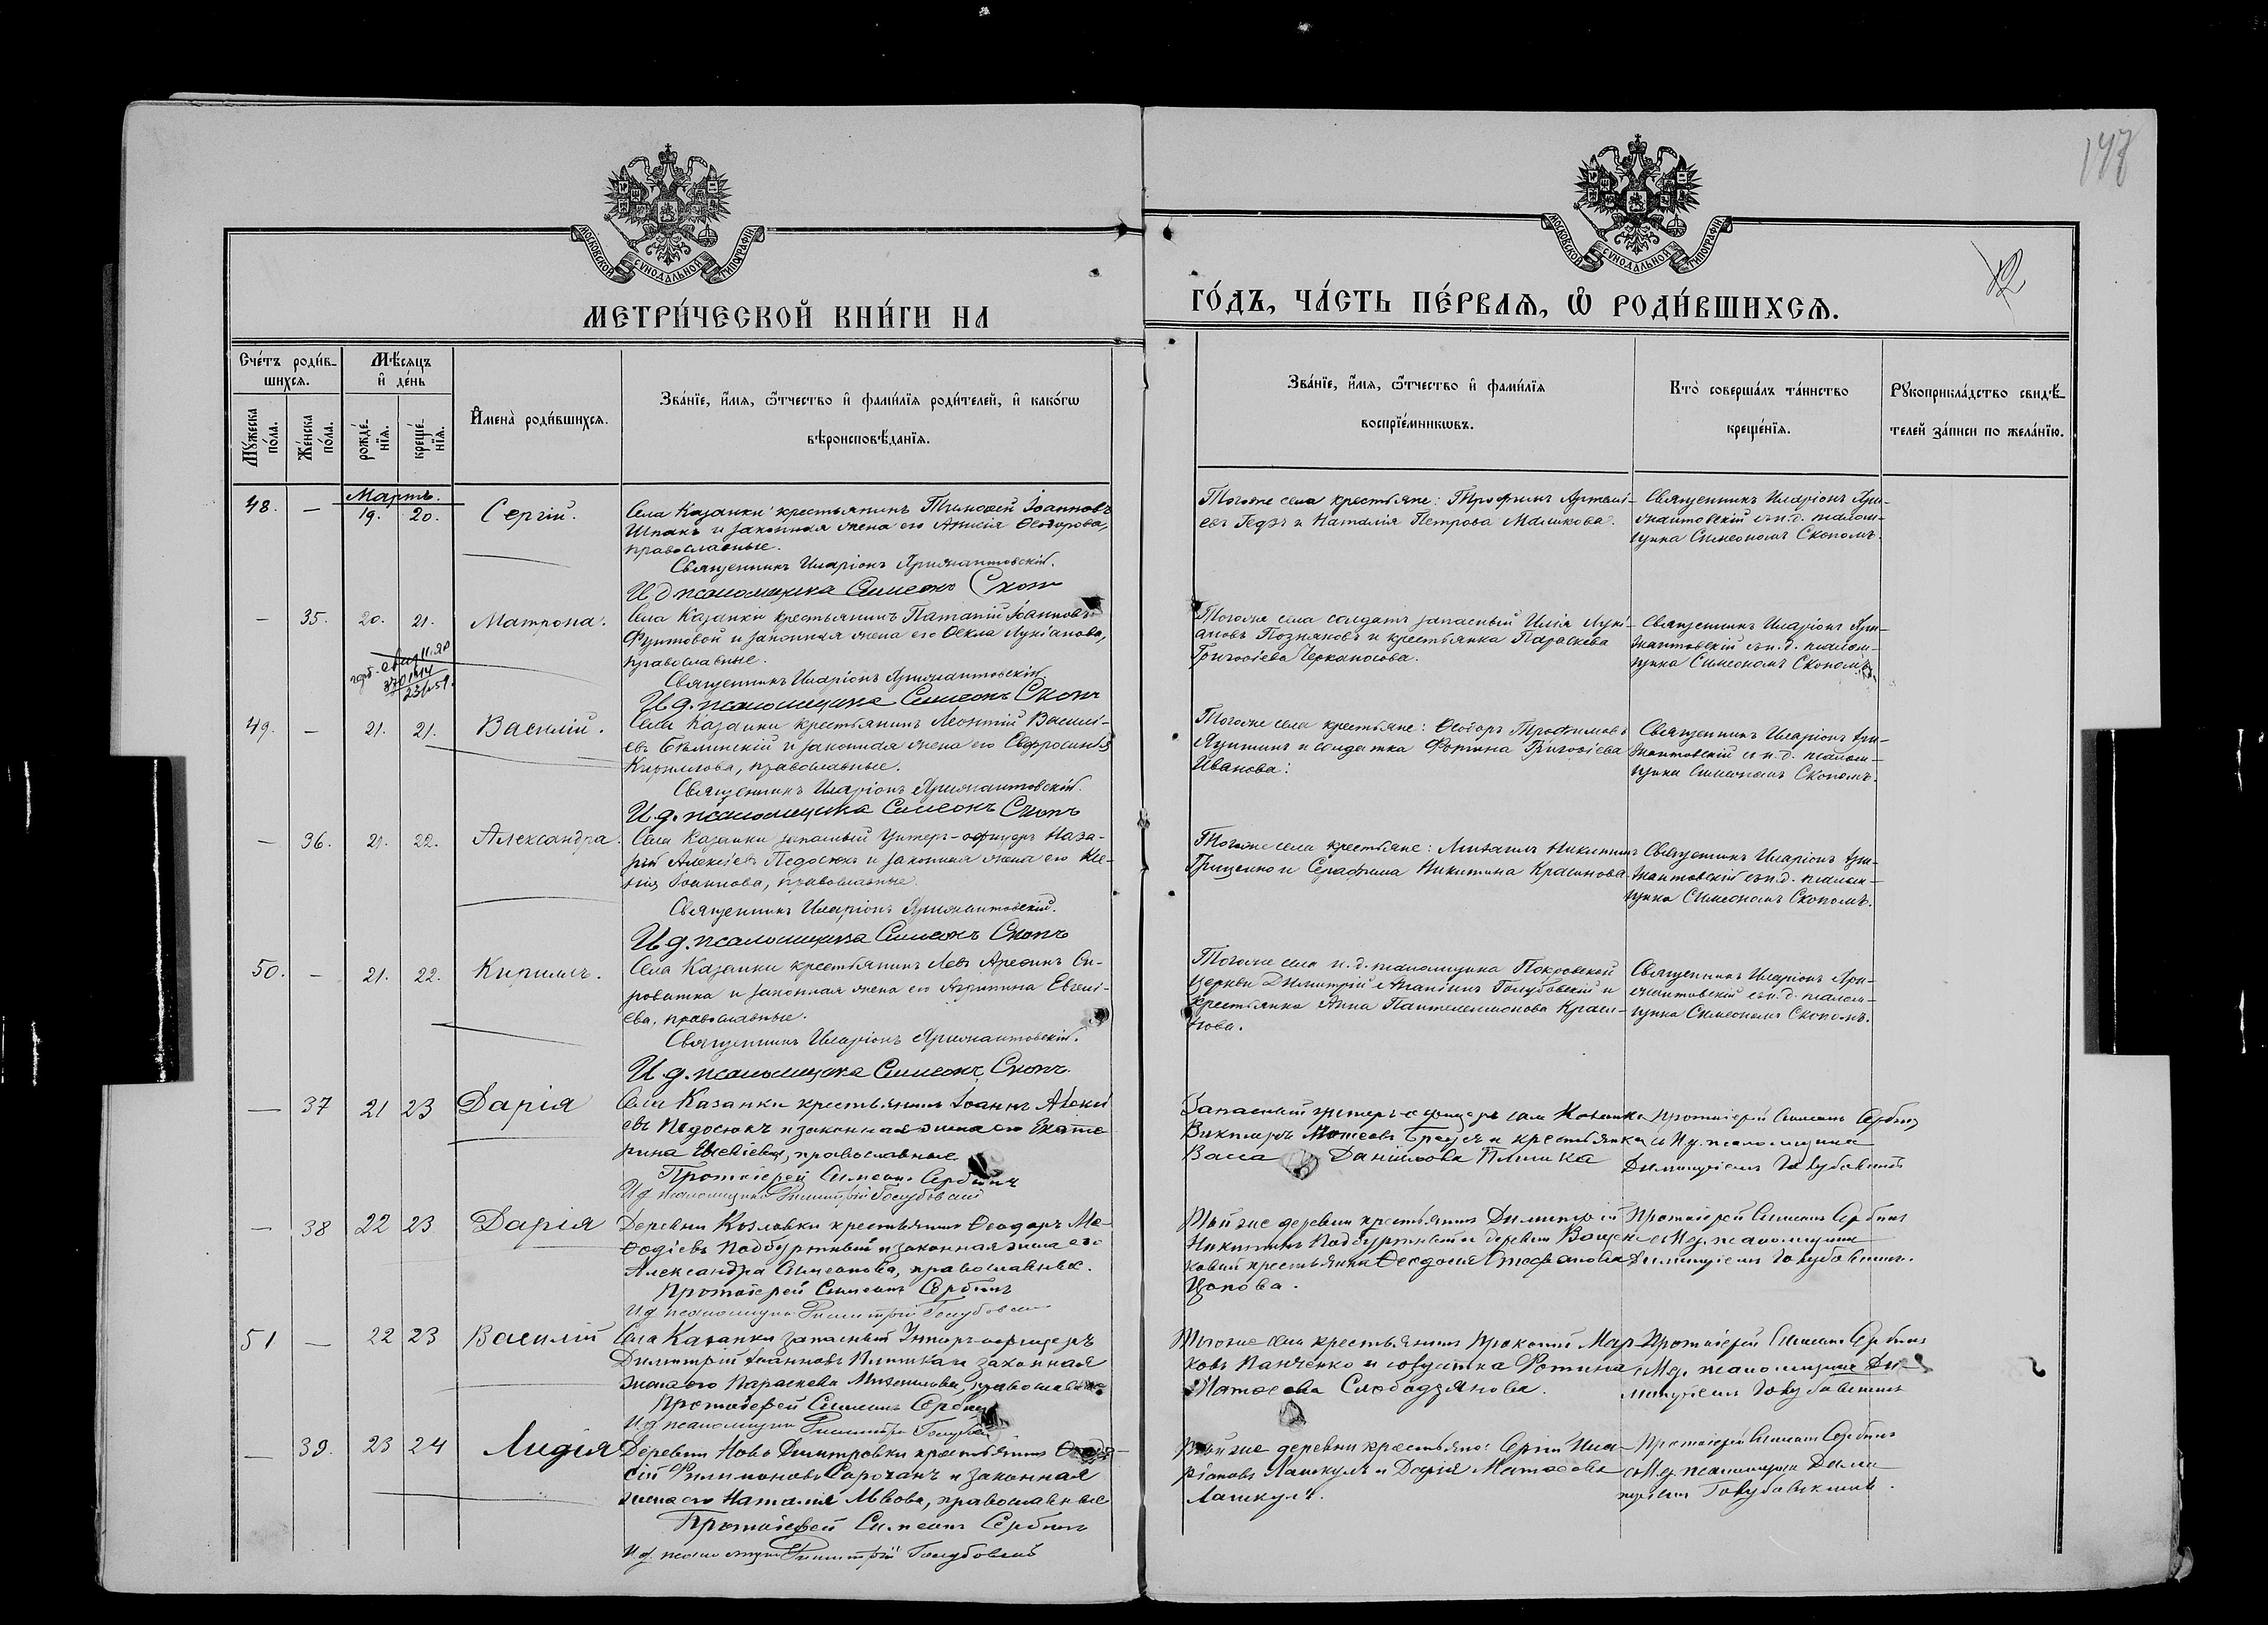 147
МОСКОВСКОЙ СѴНОДАЛЬНОЙ ТИПОГРАФІИ
МОСКОВСКОЙ СѴНОДАЛЬНОЙ ТИПОГРАФІИ
МЕТРИ́ЧЕСКОЙ КНИ́ГИ НА
ГО́ДЪ, ЧА́СТЬ ПЕ́РВАѦ, Ѿ РОДИ́ВШИХСѦ.
Сче́тъ роди́в-
шихсѧ.
Мѣ́сяцъ
и҆ де́нь
Мꙋ́жеска
по́ла.
Же́нска
по́ла.
рожде́-
нїѧ.
креще́-
нїѧ.
И҆мена̀ роди́вшихсѧ.
Зва́нїе, и҆́мѧ, ѻ҆́тчество и҆ фами́лїѧ роди́телей, и҆ како́гѡ
вѣроисповѣ́данїѧ.
Зва́нїе, и҆́мѧ, ѻ҆́тчество и҆ фами́лїѧ
воспрїе́мникѡвъ.
Кто̀ соверша́лъ та́инство
креще́нїѧ.
Рꙋкоприкла́дство свидѣ́-
телей за́писи по жела́нїю.
Мартъ.
48. — 19. 20. Сергій.
Села Казанки крестьянинъ Тимофей Іоанновъ
Шпакъ и законная жена его Анисія Ѳеодорова,
православные.
Священникъ Иларіонъ
И д псаломщика Симеонъ Скопъ
Тогоже села крестьяне: Трофимъ Артемі-
евъ и Наталія Петрова Машкова.
Священникъ Иларіонъ
съ и. д. псалом-
щика Симеономъ Скопомъ.
— 35. 20. 21. Матрона.
Села Казанки крестьянинъ Іоанновъ
и законная жена его Ѳекла Лукіанова,
православные.
Священникъ Иларіонъ
И. д. псаломщика Симеонъ Скопъ
Тогоже села солдатъ запасный Илія Лукі-
ановъ Позняковъ и крестьянка Параскева
Григоріева Черкасова.
Священникъ Иларіонъ
съ и. д. псалом-
щика Симеономъ Скопомъ.
49. — 21. 21. Василій.
Села Казанки крестьянинъ Леонтій Василі-
евъ Бѣлинскій и законная жена его Евфросинія
Кириллова, православные.
Священникъ Иларіонъ
И. д. псаломщика Симеонъ Скопъ
Тогоже села крестьяне: Ѳеодоръ Трофимовъ
и солдатка Фотина Григоріева
Иванова.
Священникъ Иларіонъ
съ и. д. псалом-
щика Симеономъ Скопомъ.
— 36. 21. 22. Александра.
Села Казанки запасный унтеръ-офицеръ Наза-
рій Алексіевъ Педосюкъ и законная жена его Ксе-
нія Іоаннова, православные.
Священникъ Иларіонъ
И. д. псаломщика Симеонъ Скопъ
Тогоже села крестьяне: Михаилъ Никитинъ
Гриценко и Серафима Никитина Красинова
Священникъ Иларіонъ
съ и. д. псалом-
щика Симеономъ Скопомъ.
50. — 21. 22. Кириллъ.
Села Казанки крестьянинъ Левъ Арефинъ Си-
роватка и законная жена его Евгені-
ева, православные.
Священникъ Иларіонъ
И. д. псаломщика Симеонъ Скопъ.
Тогоже села и. д. псаломщика Покровской
церкви Димитрій Голубовскій и
крестьянка Анна Пантелеимонова Краси-
нова.
Священникъ Иларіонъ
съ и. д. псалом-
щика Симеономъ Скопомъ.
— 37 21 23 Дарія
Села Казанки крестьянинъ Іоаннъ Алексі
евъ Педосюкъ и законная жена его Екате
рина Евсевіева, православные
Протоіерей Симеонъ Сербинъ
И д псаломщика Димитрій Голубовскій
Запасный унтеръ-офицеръ села Казанки
Викторъ и крестьянка
Васса Даніилова Плишка
Протоіерей Симеонъ Сербинъ
съ И. д. псаломщика
Димитріемъ Голубовскимъ
— 38 22 23 Дарія
Деревни Козловки крестьянинъ Ѳеодоръ Ме-
ѳодіевъ Подбуртный и законная жена его
Александра Симеонова, православные.
Протоіерей Симеонъ Сербинъ
И д псаломщика Димитрій Голубовскій
Той же деревни крестьянинъ Димитрій
Никитинъ Подбуртный и деревни
крестьянка Ѳеодосія Стефанова
Цопова.
Протоіерей Симеонъ Сербинъ
съ И д. псаломщика
Димитріемъ Голубовскимъ.
51 — 22 23 Василій
Села Казанки запасный Унтеръ-офицеръ
Димитрій Іоанновъ Плишка и законная
жена его Параскева Михаилова, православные
Протоіерей Симеонъ Сербинъ
И д псаломщика Димитрій Голубовскій
Того же села крестьянинъ Прокопій Мар-
ковъ Панченко и солдатка Фотина
Матѳеева Слободзянова.
Протоіерей Симеонъ Сербинъ
съ И д. псаломщика Ди-
митріемъ Голубовскимъ
— 39. 23 24 Лидія
Деревни Ново Димитровки крестьянинъ
Филимоновъ Сарочанъ и законная
жена его Наталія Львова, православные
Протоіерей Симеонъ Сербинъ
И д. псаломщика Димитрій Голубовскій
Той же деревни крестьяне: Сергій Ила-
ріоновъ Лашкулъ и Дарія Матѳеева
Лашкулъ.
Протоіерей Симеонъ Сербинъ
съ И. д. псаломщика Дими-
тріемъ Голубовскимъ.